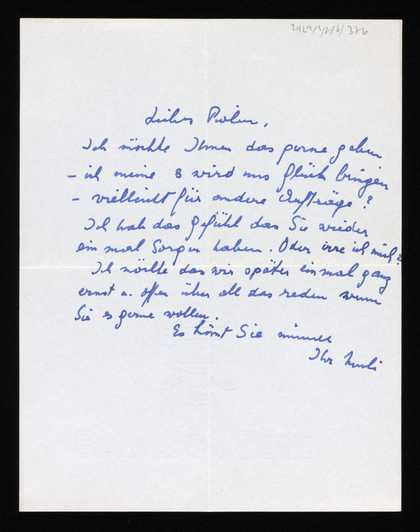 Lieber
Ich möchte Ihnen das gerne geben
- ich meine es wird uns Glück bringen
- vielleicht für andere Aufträge?
Ich hab das Gefühl das Sie wieder
ein mal Sorgen haben. Oder irre ich mich?
Ich möchte das wir später einmal ganz
ernst u. offen über all das reden wenn
Sie es gerne wollen.
Es Sie
Ihr